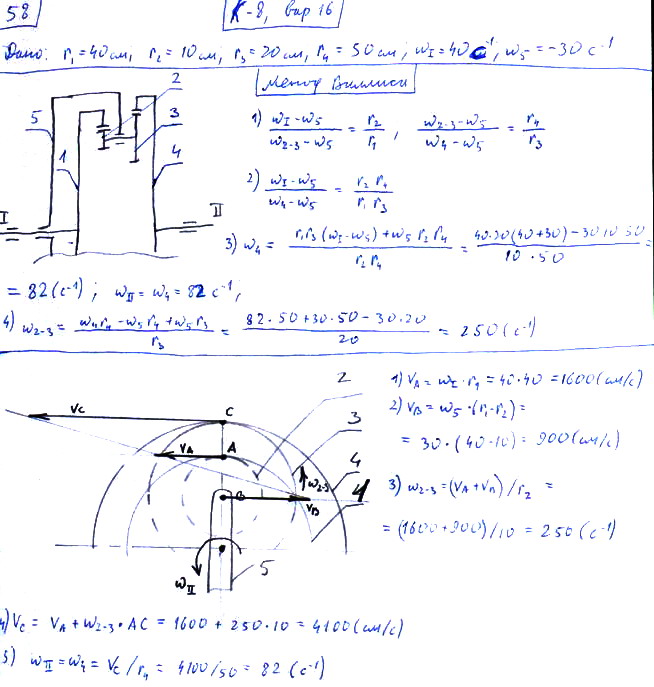 58
К-8, вар 16
Дано: r₁=40см, r₂=10см, r₃=20см, r₄=50см; ω_I=40 с⁻¹, ω₅=-30 с⁻¹
Метод Виллиса
2
5
3
1
4
I
II
1) (ω_I-ω₅)/(ω₂₋₃-ω₅) = r₂/r₁, (ω₂₋₃-ω₅)/(ω₄-ω₅) = r₄/r₃
2) (ω_I-ω₅)/(ω₄-ω₅) = (r₂ r₄)/(r₁ r₃)
3) ω₄ = (r₁r₃(ω_I-ω₅)+ω₅ r₂ r₄)/(r₂ r₄) = (40·20(40+30)-30·10·50)/(10·50) =
= 82(с⁻¹); ω_II=ω₄=82 с⁻¹;
4) ω₂₋₃ = (ω₄r₄-ω₅r₄+ω₅r₃)/r₃ = (82·50+30·50-30·20)/20 = 250(с⁻¹)
V_C
C
V_A
A
B
V_B
ω₂₋₃
2
3
4
1
ω_II
5
1) V_A=ω_I·r₁=40·40=1600(см/с)
2) V_B=ω₅·(r₁-r₂)=
= 30·(40-10)=900(см/с)
3) ω₂₋₃=(V_A+V_B)/r₂ =
=(1600+900)/10=250(с⁻¹)
4) V_C = V_A+ω₂₋₃·AC = 1600+250·10=4100(см/с)
5) ω_II=ω₄=V_C/r₄=4100/50=82 (с⁻¹)